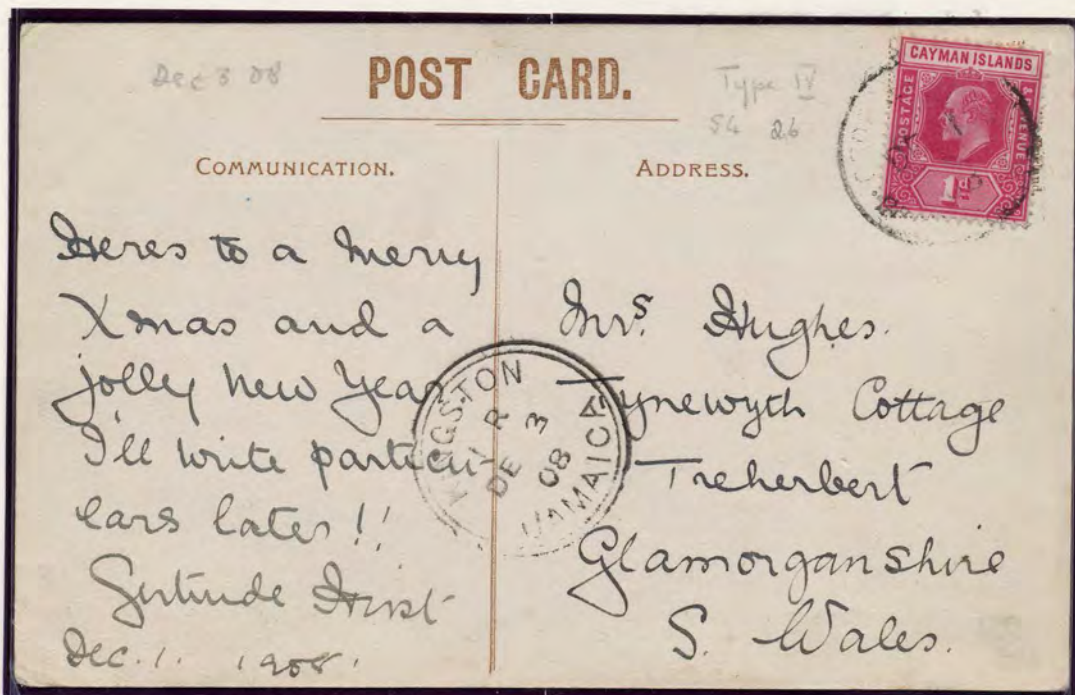 Dec 3 08
POST CARD.
Type IV
SG 26
CAYMAN ISLANDS
POSTAGE & REVENUE
1d
COMMUNICATION.
Heres to a Merry
Xmas and a
jolly New Year
I'll write particu-
lars later!!
Gertrude Hirst
Dec. 1. 1908.
KINGSTON
R
DE 3
08
JAMAICA
ADDRESS.
Mrs. Hughes.
Tynewyth Cottage
Treherbert
Glamorganshire
S. Wales.